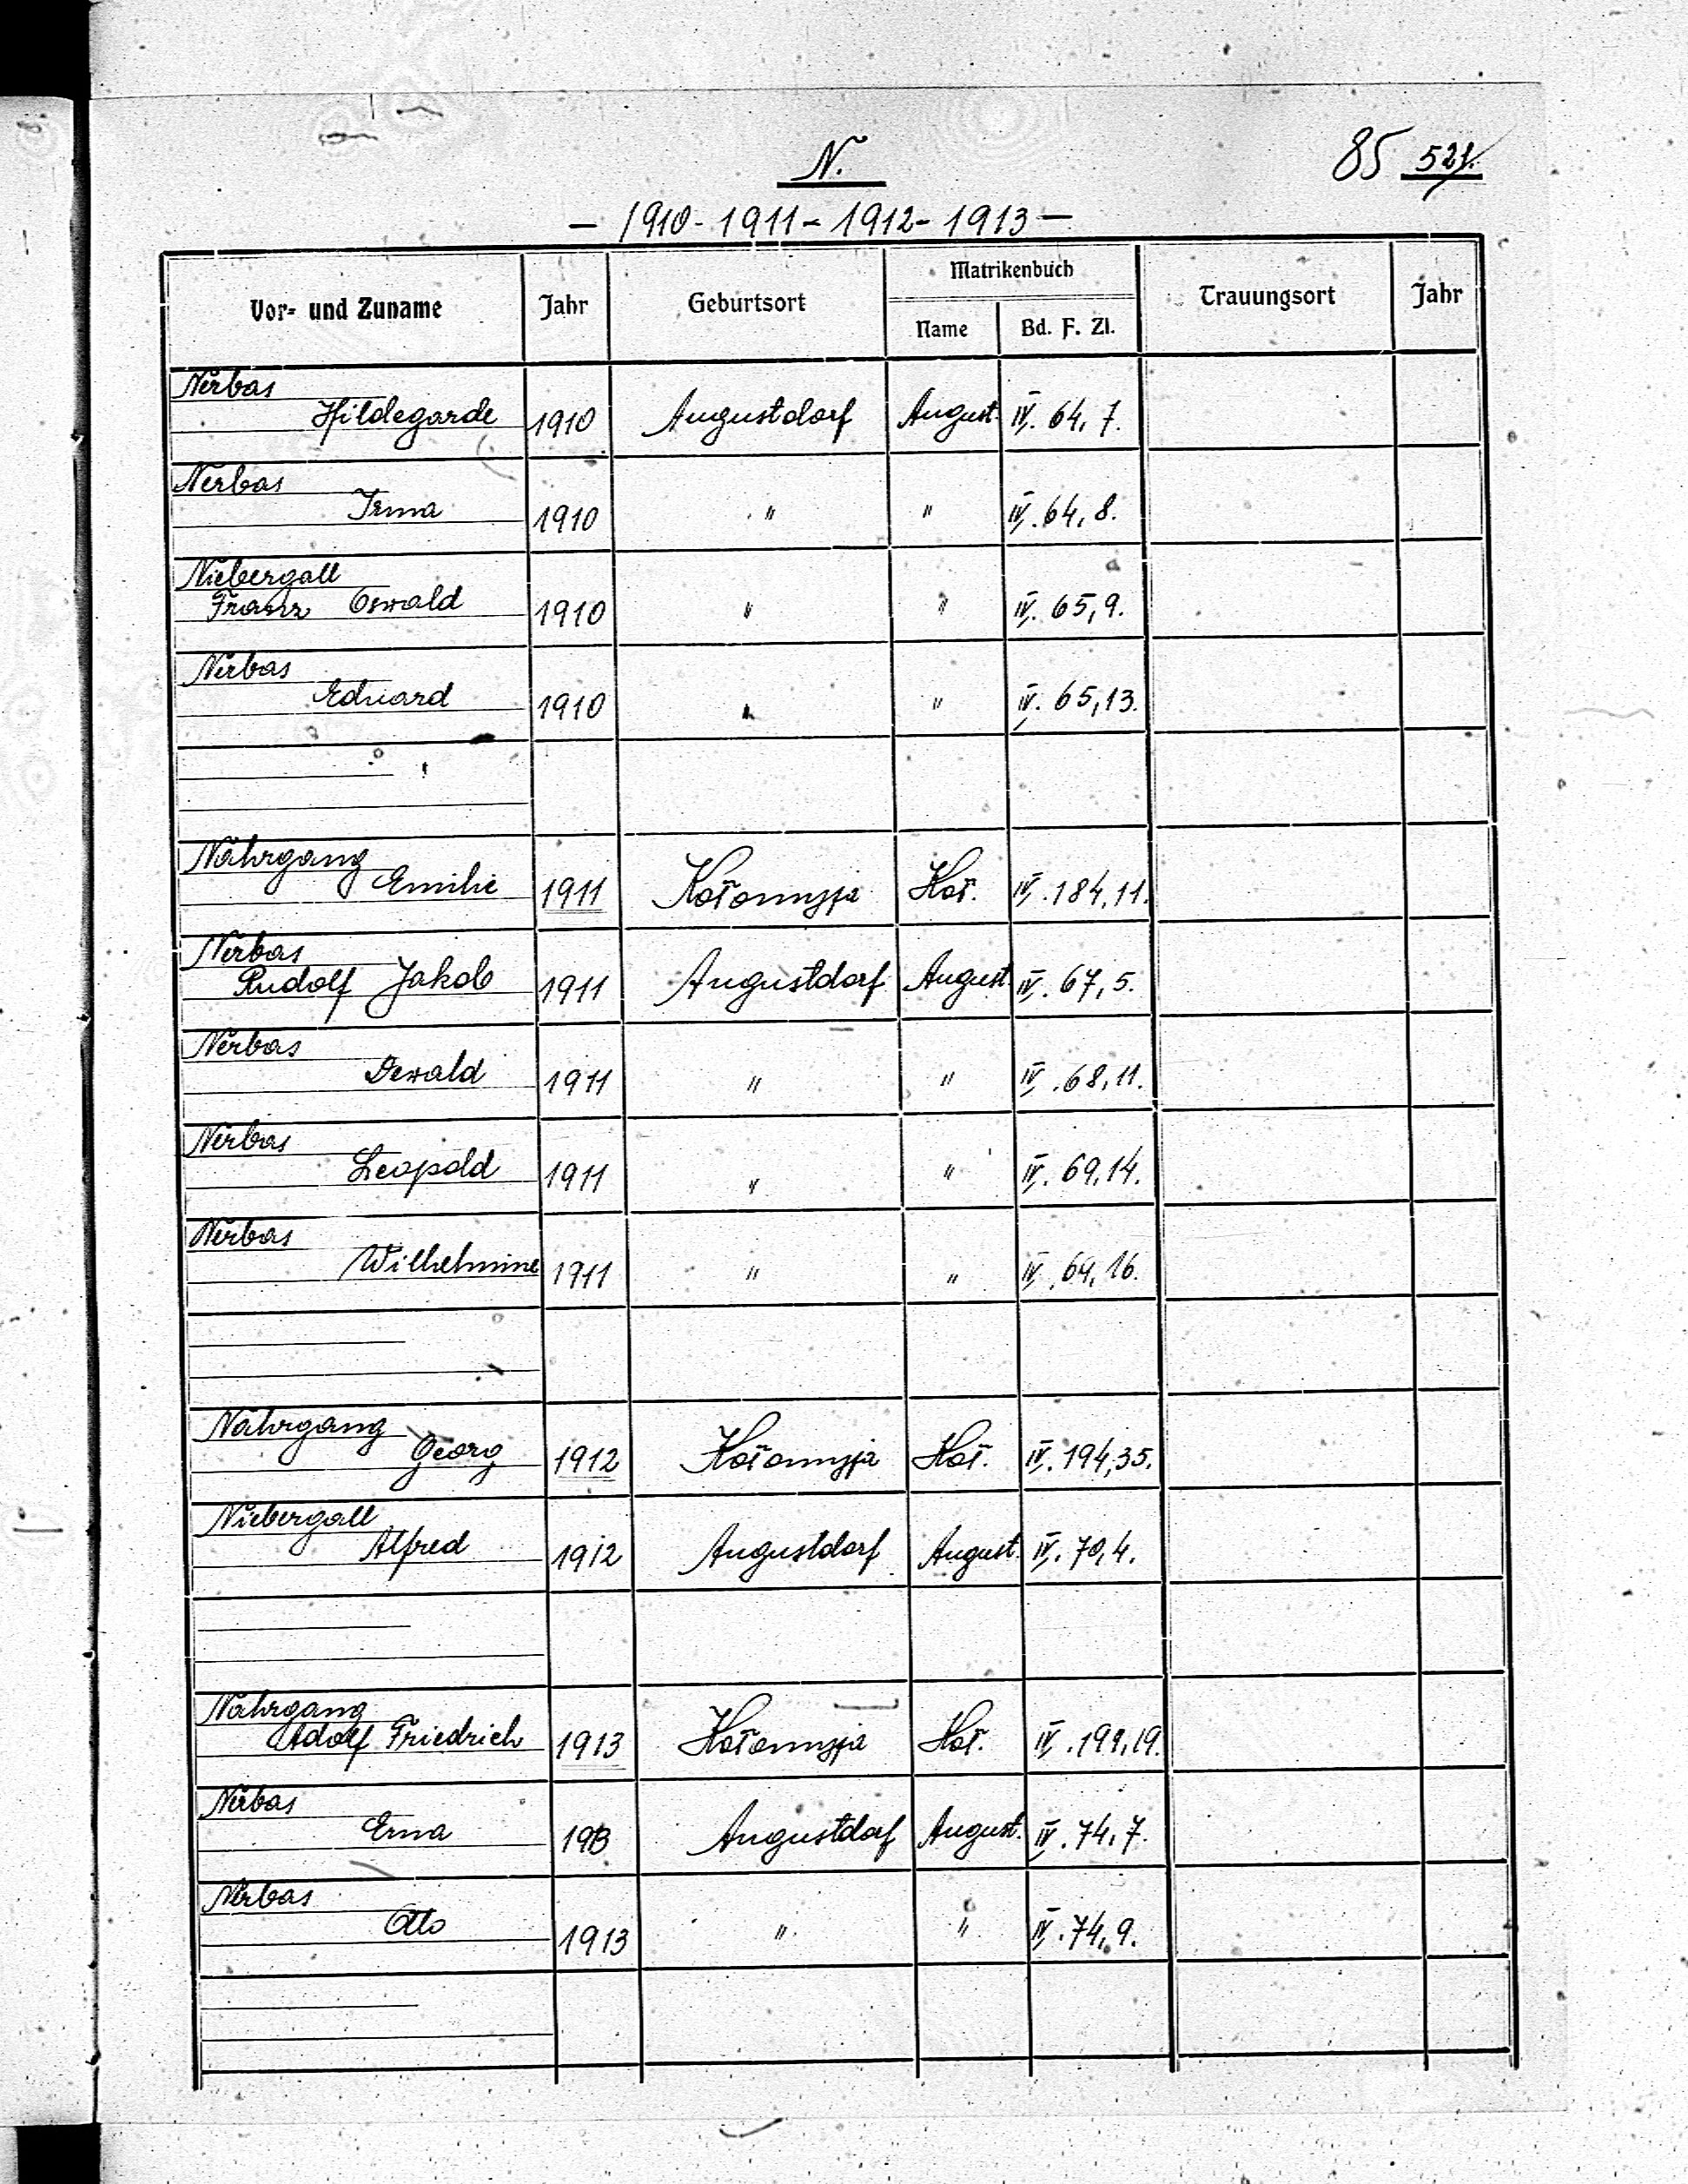 N.
85 521.
— 1910 - 1911 - 1912 - 1913 —
Vor- und Zuname Jahr Geburtsort Matrikenbuch Trauungsort Jahr
Name Bd. F. Zl.
Nerbas
Hildegarde 1910 Augustdorf August. IV. 64, 7.
Nerbas
Irma 1910 " " IV. 64, 8.
Niebergall
Franz Oswald 1910 " " IV. 65, 9.
Nerbas
Eduard 1910 " " IV. 65, 13.
Nahrgang
Emilie 1911 Kołomyja Koł. IV. 184, 11.
Nerbas
Rudolf Jakob 1911 Augustdorf August. IV. 67, 5.
Nerbas
Oswald 1911 " " IV. 68, 11.
Nerbas
Leopold 1911 " " IV. 69, 14.
Nerbas
Wilhelmine 1911 " " IV. 69, 16.
Nahrgang
Georg 1912 Kołomyja Koł. IV. 194, 35.
Niebergall
Alfred 1912 Augustdorf August. IV. 70, 4.
Nahrgang
Adolf Friedrich 1913 Kołomyja Koł. IV. 199, 19.
Nerbas
Erna 1913 Augustdorf August. IV. 74, 7.
Nerbas
Otto 1913 " " IV. 74, 9.